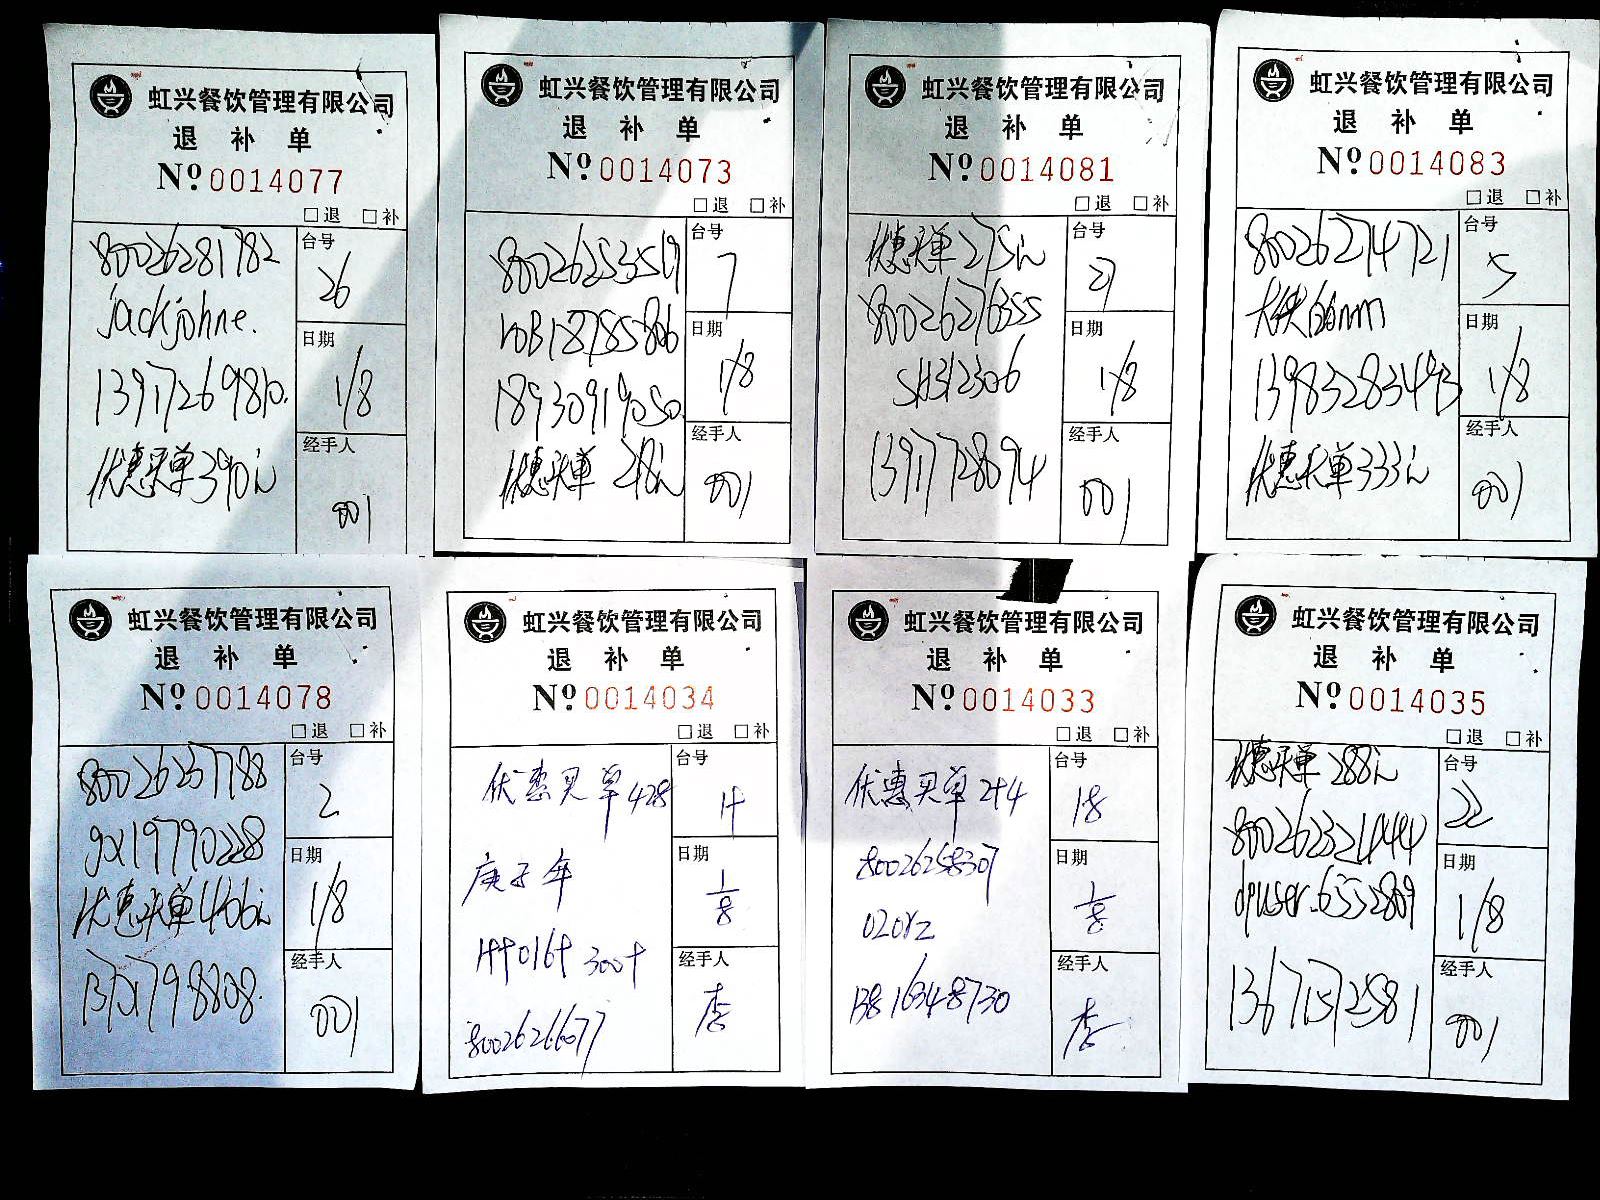 虹兴餐饮管理有限公司
退 补 单
Nº 0014077
□退 □补
80026281782
jackjohne.
13917269810.
优惠买单390元
台号
26
日期
1/8
经手人
001
虹兴餐饮管理有限公司
退 补 单
Nº 0014073
□退 □补
18930919050.
优惠买单
台号
7
日期
1/8
经手人
001
虹兴餐饮管理有限公司
退 补 单
Nº 0014081
□退 □补
优惠买单275元
80026276355
SH312306
13917728094
台号
日期
1/8
经手人
001
虹兴餐饮管理有限公司
退 补 单
Nº 0014083
□退 □补
80026274721
13983283493
优惠买单333元
台号
5
日期
1/8
经手人
001
虹兴餐饮管理有限公司
退 补 单
Nº 0014078
□退 □补
80026237788
gx19790228
优惠买单406元
台号
2
日期
1/8
经手人
001
虹兴餐饮管理有限公司
退 补 单
Nº 0014034
□退 □补
优惠买单428
庚子年
80026266077
台号
日期
1/8
经手人
李
虹兴餐饮管理有限公司
退 补 单
Nº 0014033
□退 □补
优惠买单244
80026258307
13816348730
台号
18
日期
1/8
经手人
李
虹兴餐饮管理有限公司
退 补 单
Nº 0014035
□退 □补
优惠买单288元
80026321444
dpuser.6552809
13671572581
台号
22
日期
1/8
经手人
001